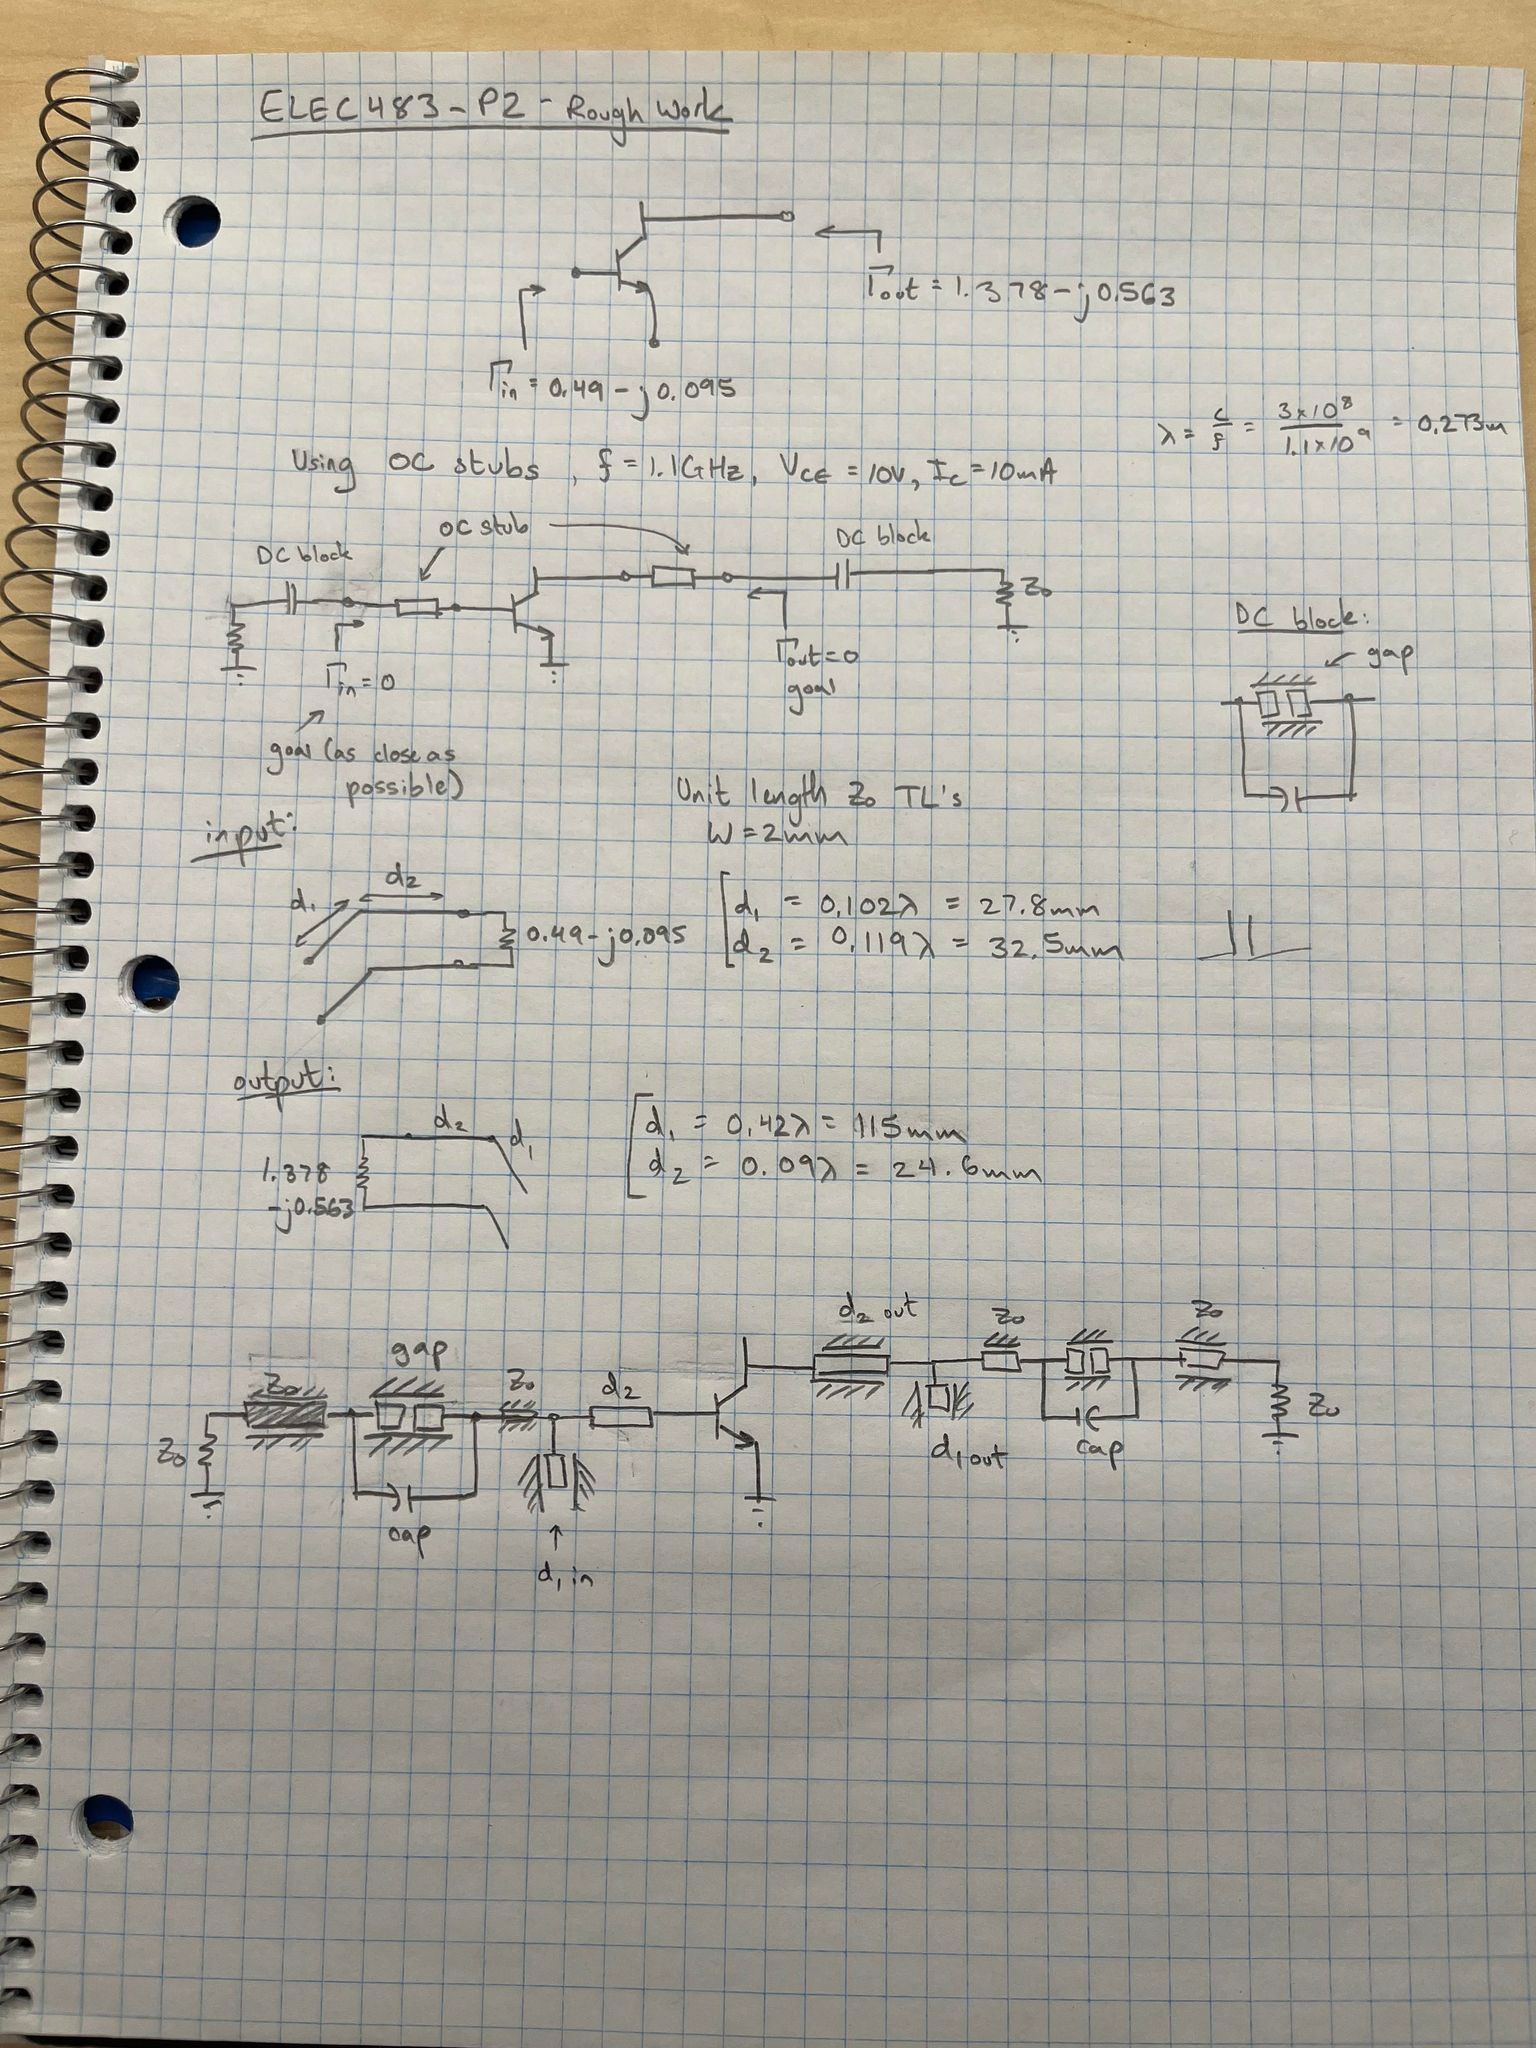 ELEC483-P2-Rough Work
Γout = 1.378-j0.563
Γin = 0.49-j0.095
λ = c/f = 3×10⁸/1.1×10⁹ = 0.273m
Using OC stubs, f=1.1GHz, VCE=10V, IC=10mA
OC stub
DC block
DC block
Z₀
Γin=0
Γout=0
goal
goal (as close as
possible)
DC block:
gap
Unit length Z₀ TL's
W=2mm
input:
d₁
d₂
0.49-j0.095
d₁ = 0.102λ = 27.8mm
d₂ = 0.119λ = 32.5mm
output:
d₂
d₁
1.378
-j0.563
d₁ = 0.42λ = 115mm
d₂ = 0.09λ = 24.6mm
gap
Z₀
Z₀
Z₀
d₂
cap
d₁ in
d₂ out
Z₀
Z₀
d₁ out
cap
Z₀